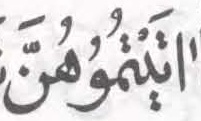 اتَيْتُمُوْهُنَّ